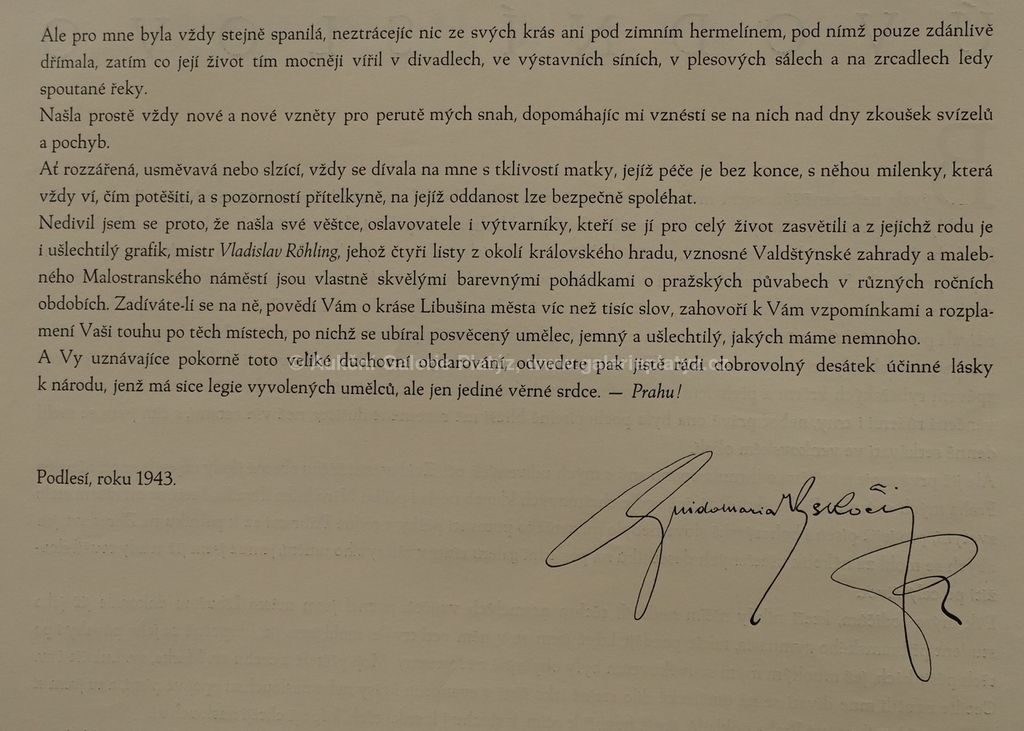 Ale pro mne byla vždy stejně spanilá, neztrácejíc nic ze svých krás ani pod zimním hermelínem, pod nímž pouze zdánlivě
dřímala, zatím co její život tím mocněji vířil v divadlech, ve výstavních síních, v plesových sálech a na zrcadlech ledy
spoutané řeky.
Našla prostě vždy nové a nové vzněty pro perutě mých snah, dopomáhajíc mi vznésti se na nich nad dny zkoušek svízelů
a pochyb.
Ať rozzářená, usměvavá nebo slzící, vždy se dívala na mne s tklivostí matky, jejíž péče je bez konce, s něhou milenky, která
vždy ví, čím potěšiti, a s pozorností přítelkyně, na jejíž oddanost lze bezpečně spoléhat.
Nedivil jsem se proto, že našla své věštce, oslavovatele i výtvarníky, kteří se jí pro celý život zasvětili a z jejichž rodu je
i ušlechtilý grafik, mistr Vladislav Röhling, jehož čtyři listy z okolí královského hradu, vznosné Valdštýnské zahrady a maleb-
ného Malostranského náměstí jsou vlastně skvělými barevnými pohádkami o pražských půvabech v různých ročních
obdobích. Zadíváte-li se na ně, povědí Vám o kráse Libušina města víc než tisíc slov, zahovoří k Vám vzpomínkami a rozpla-
mení Vaši touhu po těch místech, po nichž se ubíral posvěcený umělec, jemný a ušlechtilý, jakých máme nemnoho.
A Vy uznávajíce pokorně toto veliké duchovní obdarování, odvedete pak jistě rádi dobrovolný desátek účinné lásky
k národu, jenž má sice legie vyvolených umělců, ale jen jediné věrné srdce. — Prahu!
Podlesí, roku 1943.